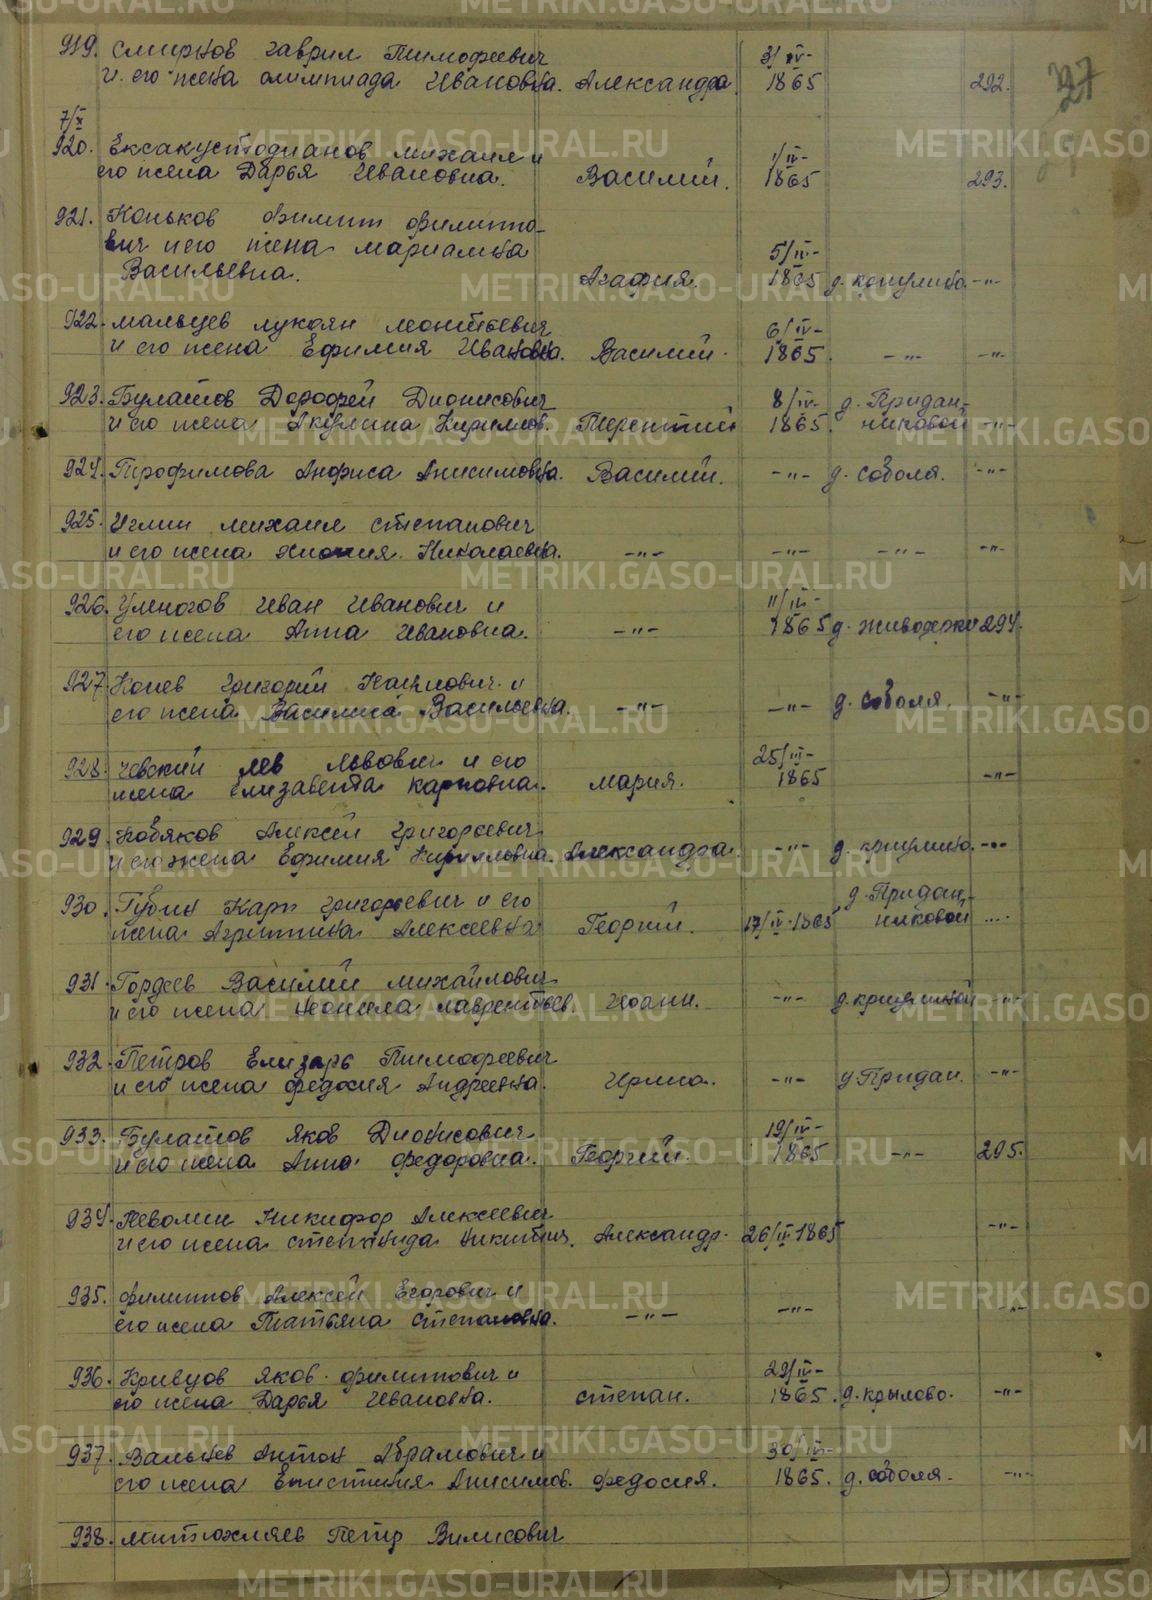 27
919. Смирнов Гаврил Тимофеевич 31/IV-
и его жена Олимпиада Ивановна. Александра. 1865 292.
7/X
920. Ексакустодианов Михаил и 1/IV-
его жена Дарья Ивановна. Василий. 1865 293.
921. Коньков Филипп Филиппо-
вич и его жена Мариамна 5/IV-
Васильевна. Агафия. 1865 д. Крнулино. -"-
922. Мальцев Лукоян Леонтьевич 6/IV-
и его жена Ефимия Ивановна. Василий. 1865. -"- -"-
923. Булатов Дорофей Дионисович 8/IV- д. Придан-
и его жена Акулина Кириллов. Терентий 1865. никовой -"-
924. Трофимова Анфиса Анисимовна. Василий. -"- д. Соболя. -"-
925. Углин Михаил Степанович
и его жена Хиония Николаевна. -"- -"- -"- -"-
926. Умногов Иван Иванович и 11/IV-
его жена Анна Ивановна. -"- 1865 д. 294.
927 Конев Григорий и
его жена Василиса Васильевна. -"- -"- д. Соболя. -"-
928. Чевский Лев Львович и его 25/III-
жена Елизавета Карповна. Мария. 1865 -"-
929. Кобяков Алексей Григорьевич
и его жена Ефимия Кирилловна. Александра. -"- д. -"-
930. Губин Карп Григорьевич и его д. Придан-
жена Агриппина Алексеевна Георгий. 17/IV-1865 никовой -"-
931. Гордеев Василий Михайлович
и его жена Неонила Лаврентьев. Иоанн. -"- д. -"-
932. Петров Елизарь Тимофеевич
и его жена Федосия Андреевна. Ирина. -"- д Придан. -"-
933. Булатов Яков Дионисович 19/IV-
и его жена Анна Федоровна. Георгий. 1865 -"- 295.
934. Неволин Никифор Алексеевич
и его жена Степанида Никитич. Александр. 26/IV 1865 -"-
935. Филиппов Алексей Егорович и
его жена Татьяна Степановна. -"- -"- -"-
936. Кривцов Яков Филиппович и 29/IV-
его жена Дарья Ивановна. Степан. 1865. д. Крылово. -"-
937. Вальнев Антон Абрамович и 30/IV-
его жена Епистиния Анисимов. Федосия. 1865. д. Соболя. -"-
938. Митюхляев Петр Вилисович
METRIKI.GASO-URAL.RU